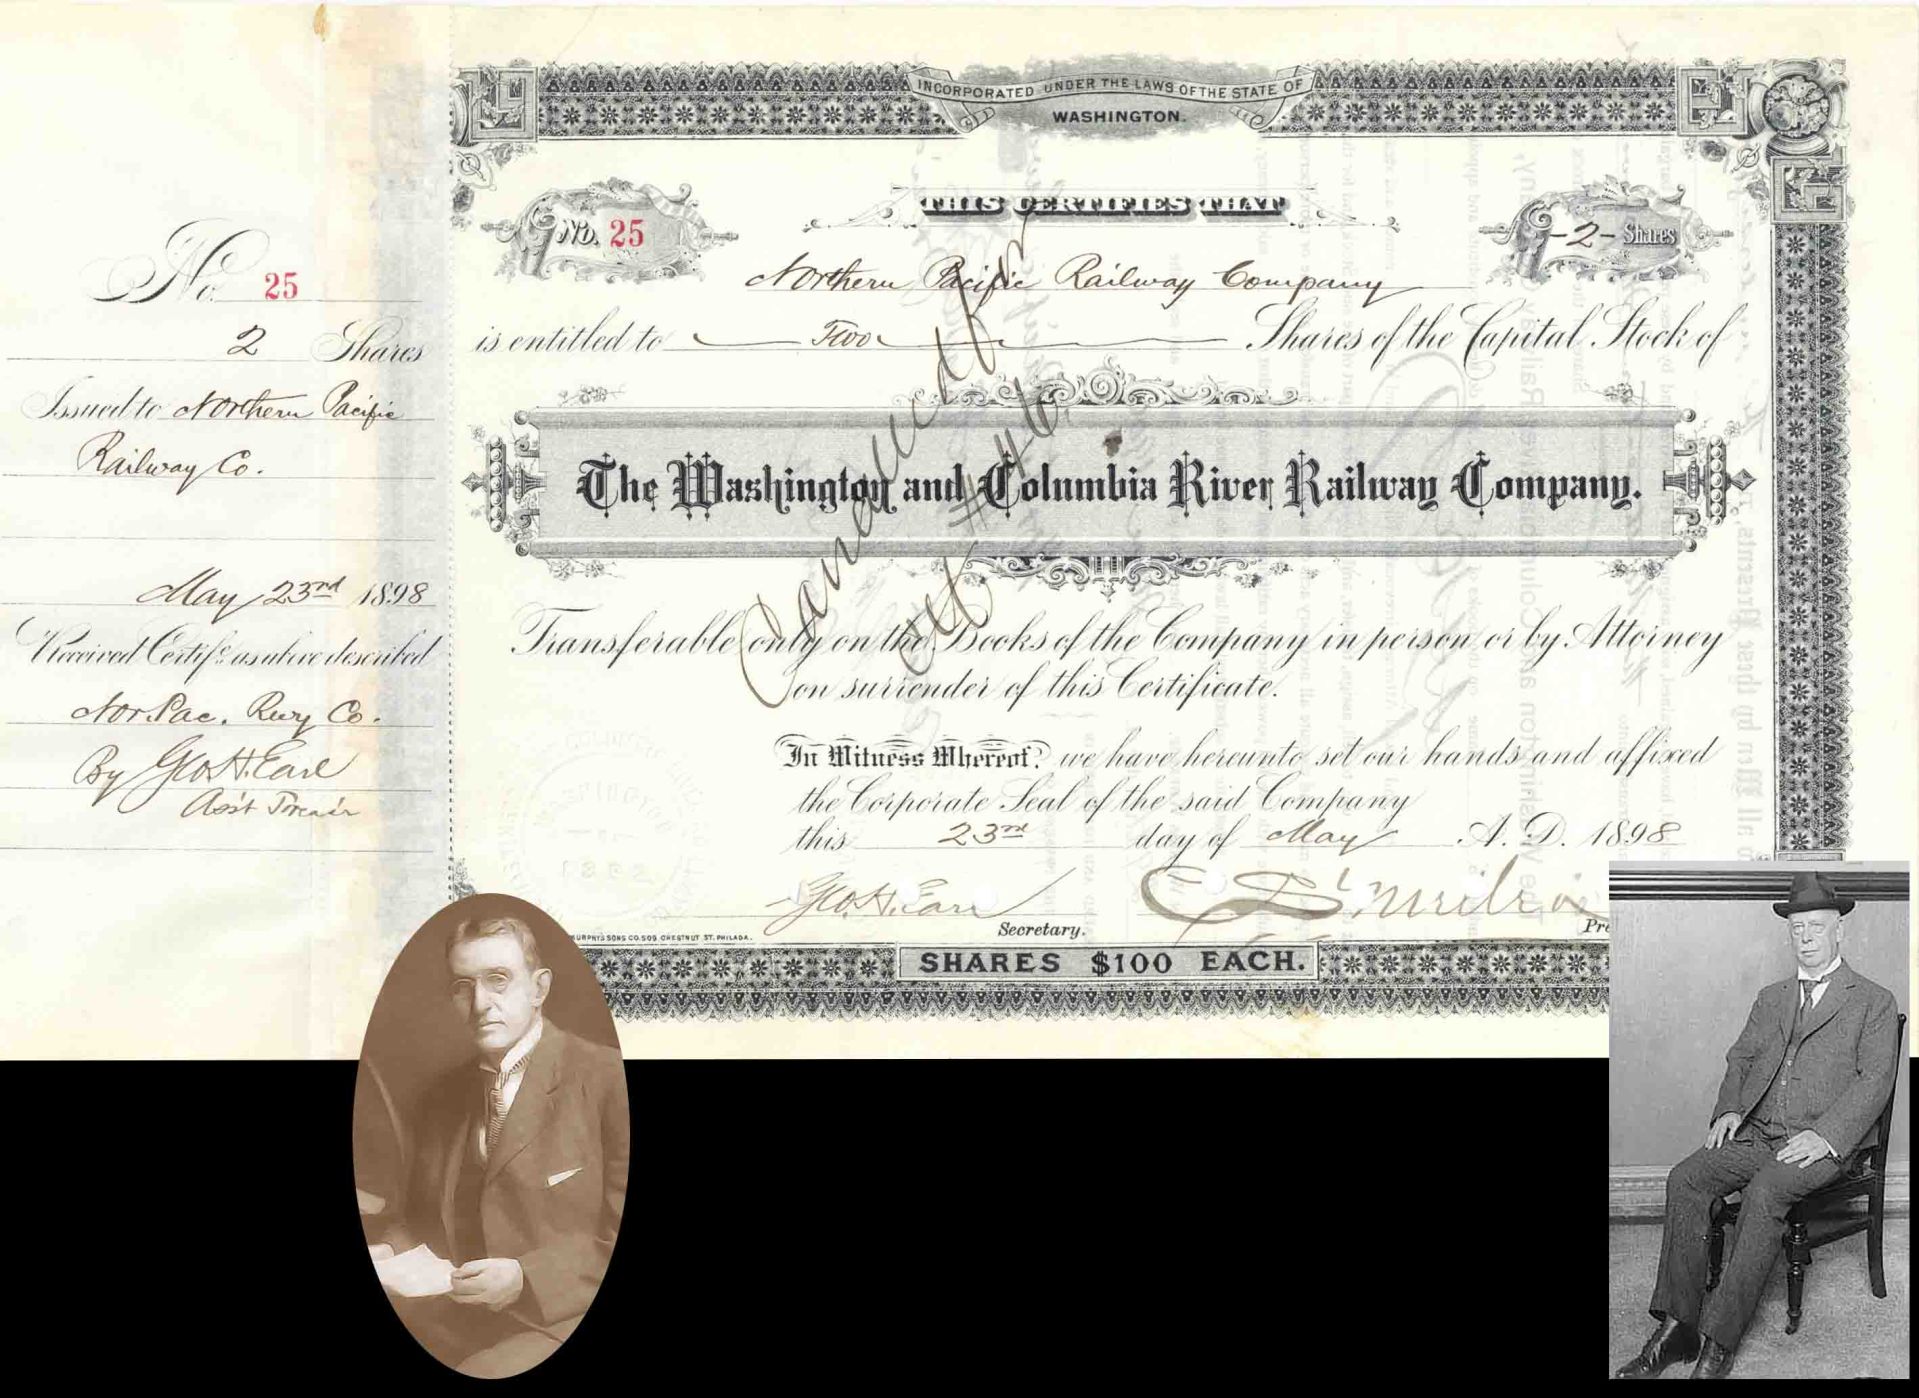 No. 25
2 Shares
Issued to Northern Pacific
Railway Co.
May 23rd 1898
Received Certif. as above described
Nor. Pac. Rwy Co.
By Geo. H. Earl
Ass't Treas'r
INCORPORATED UNDER THE LAWS OF THE STATE OF
WASHINGTON.
THIS CERTIFIES THAT
No. 25
-2- Shares
Northern Pacific Railway Company
is entitled to Two Shares of the Capital Stock of
The Washington and Columbia River Railway Company.
Cancelled for
Ctf #46
Transferable only on the Books of the Company in person or by Attorney
on surrender of this Certificate.
In Witness Whereof, we have hereunto set our hands and affixed
the Corporate Seal of the said Company
this 23rd day of May A. D. 1898
Geo. H. Earl
Secretary.
MURPHY'S SONS CO. 509 CHESTNUT ST. PHILADA.
SHARES $100 EACH.